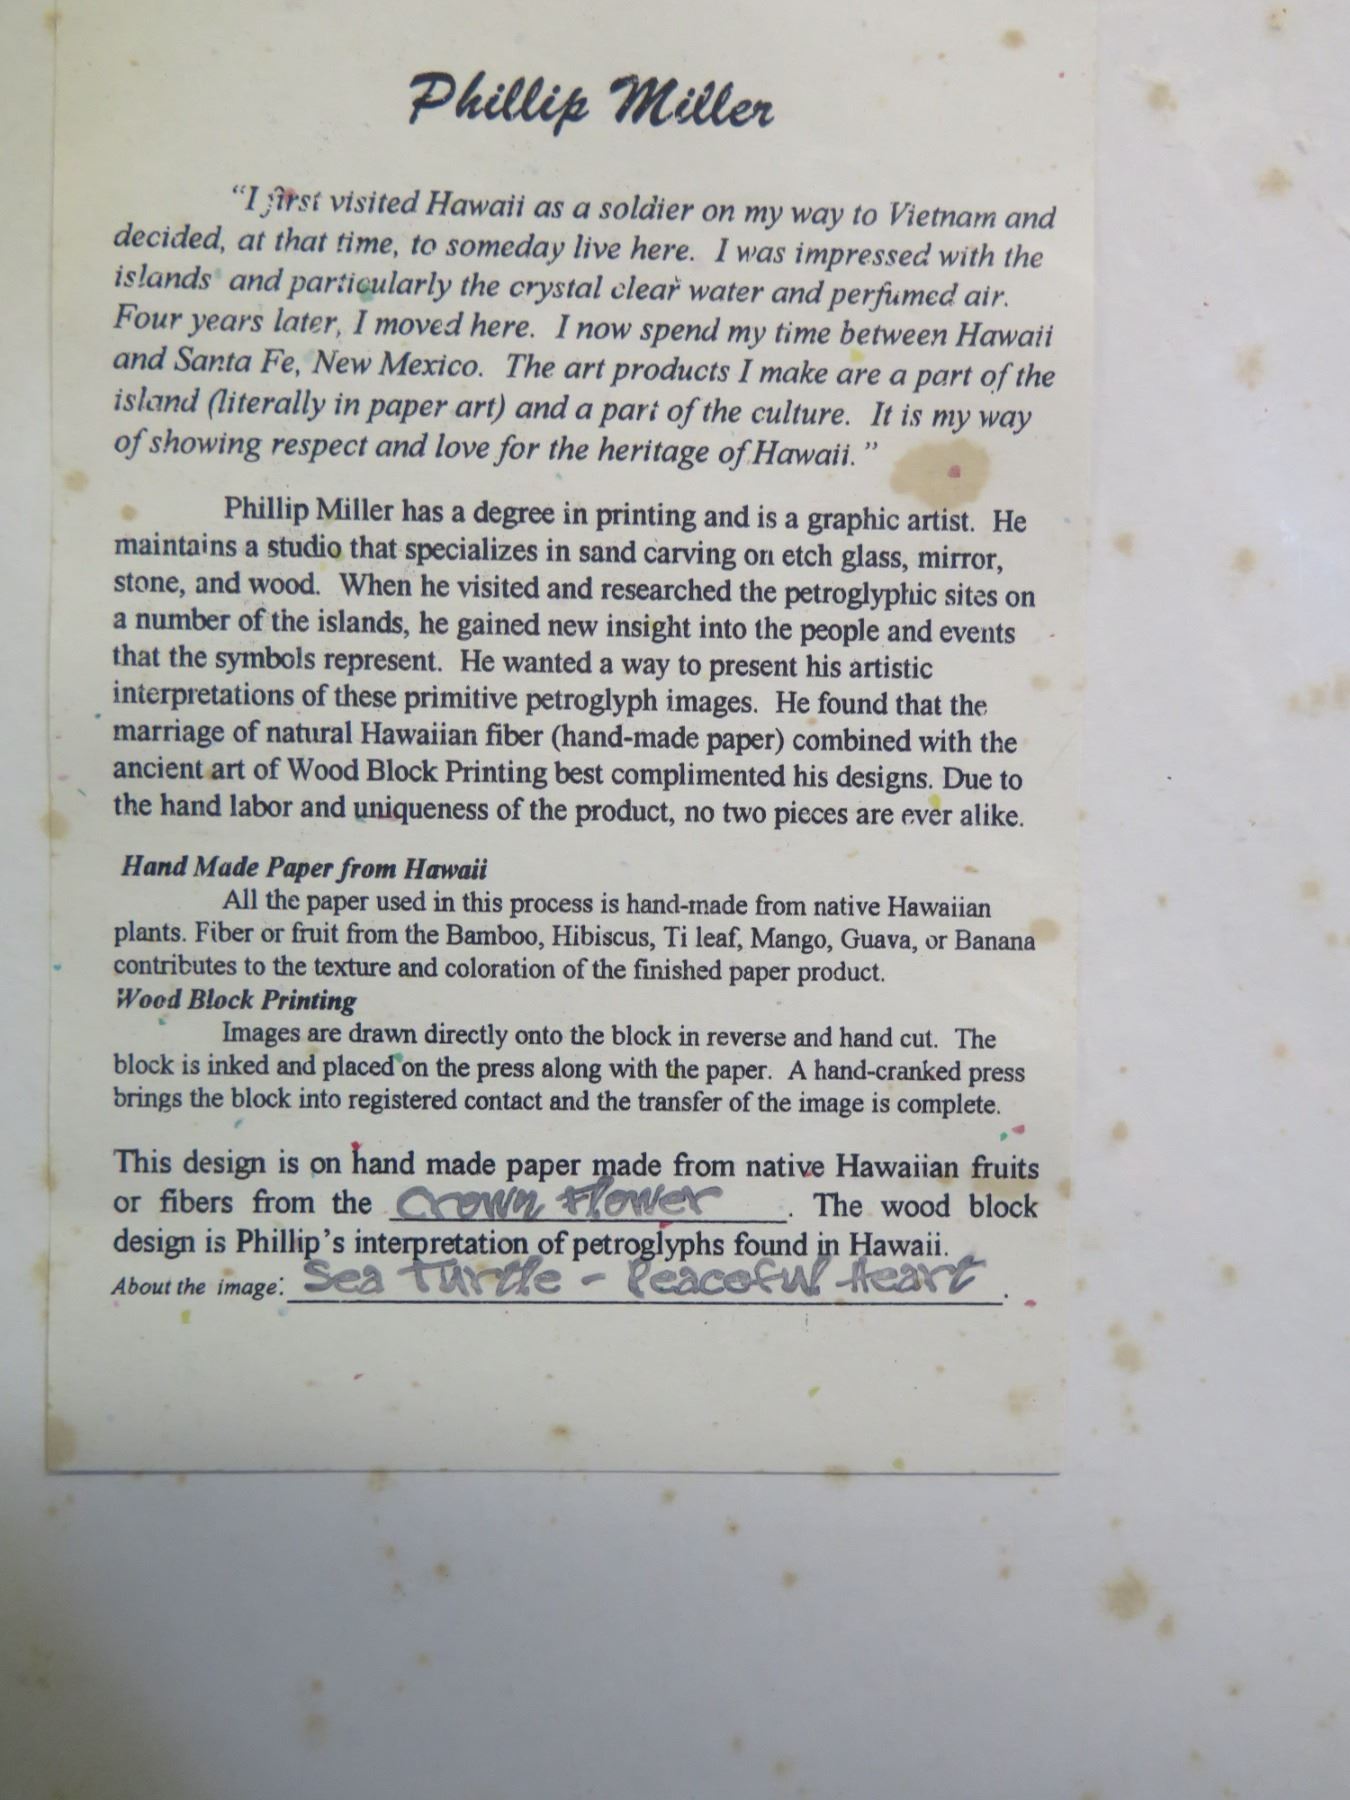 Phillip Miller
“I first visited Hawaii as a soldier on my way to Vietnam and
decided, at that time, to someday live here. I was impressed with the
islands and particularly the crystal clear water and perfumed air.
Four years later, I moved here. I now spend my time between Hawaii
and Santa Fe, New Mexico. The art products I make are a part of the
island (literally in paper art) and a part of the culture. It is my way
of showing respect and love for the heritage of Hawaii.”
Phillip Miller has a degree in printing and is a graphic artist. He
maintains a studio that specializes in sand carving on etch glass, mirror,
stone, and wood. When he visited and researched the petroglyphic sites on
a number of the islands, he gained new insight into the people and events
that the symbols represent. He wanted a way to present his artistic
interpretations of these primitive petroglyph images. He found that the
marriage of natural Hawaiian fiber (hand-made paper) combined with the
ancient art of Wood Block Printing best complimented his designs. Due to
the hand labor and uniqueness of the product, no two pieces are ever alike.
Hand Made Paper from Hawaii
All the paper used in this process is hand-made from native Hawaiian
plants. Fiber or fruit from the Bamboo, Hibiscus, Ti leaf, Mango, Guava, or Banana
contributes to the texture and coloration of the finished paper product.
Wood Block Printing
Images are drawn directly onto the block in reverse and hand cut. The
block is inked and placed on the press along with the paper. A hand-cranked press
brings the block into registered contact and the transfer of the image is complete.
This design is on hand made paper made from native Hawaiian fruits
or fibers from the Crown Flower. The wood block
design is Phillip's interpretation of petroglyphs found in Hawaii.
About the image: Sea Turtle - Peaceful Heart.